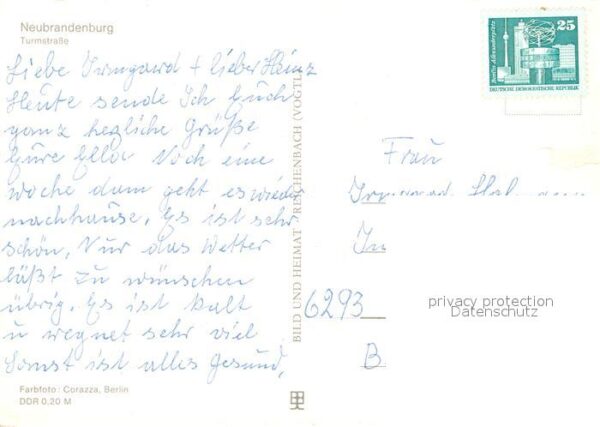 Neubrandenburg
Turmstraße
Liebe Irmgard + lieber Heinz
Heute sende Ich Euch
ganz hezliche Grüße
Eure Ella Noch eine
Woche dann geht es wieder
nachhause. Es ist sehr
schön, Nur das Wetter
läßt zu wünschen
übrig. Es ist kalt
u regnet sehr viel
Sonst ist alles Gesund,
Farbfoto: Corazza, Berlin
DDR 0,20 M
BILD UND HEIMAT REICHENBACH (VOGTL
25
Berlin, Alexanderplatz
DEUTSCHE DEMOKRATISCHE REPUBLIK
Frau
Irmgard
In
6293
B
privacy protection
Datenschutz